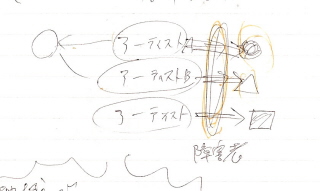 アーティスト
アーティストB
アーティスト
障害者